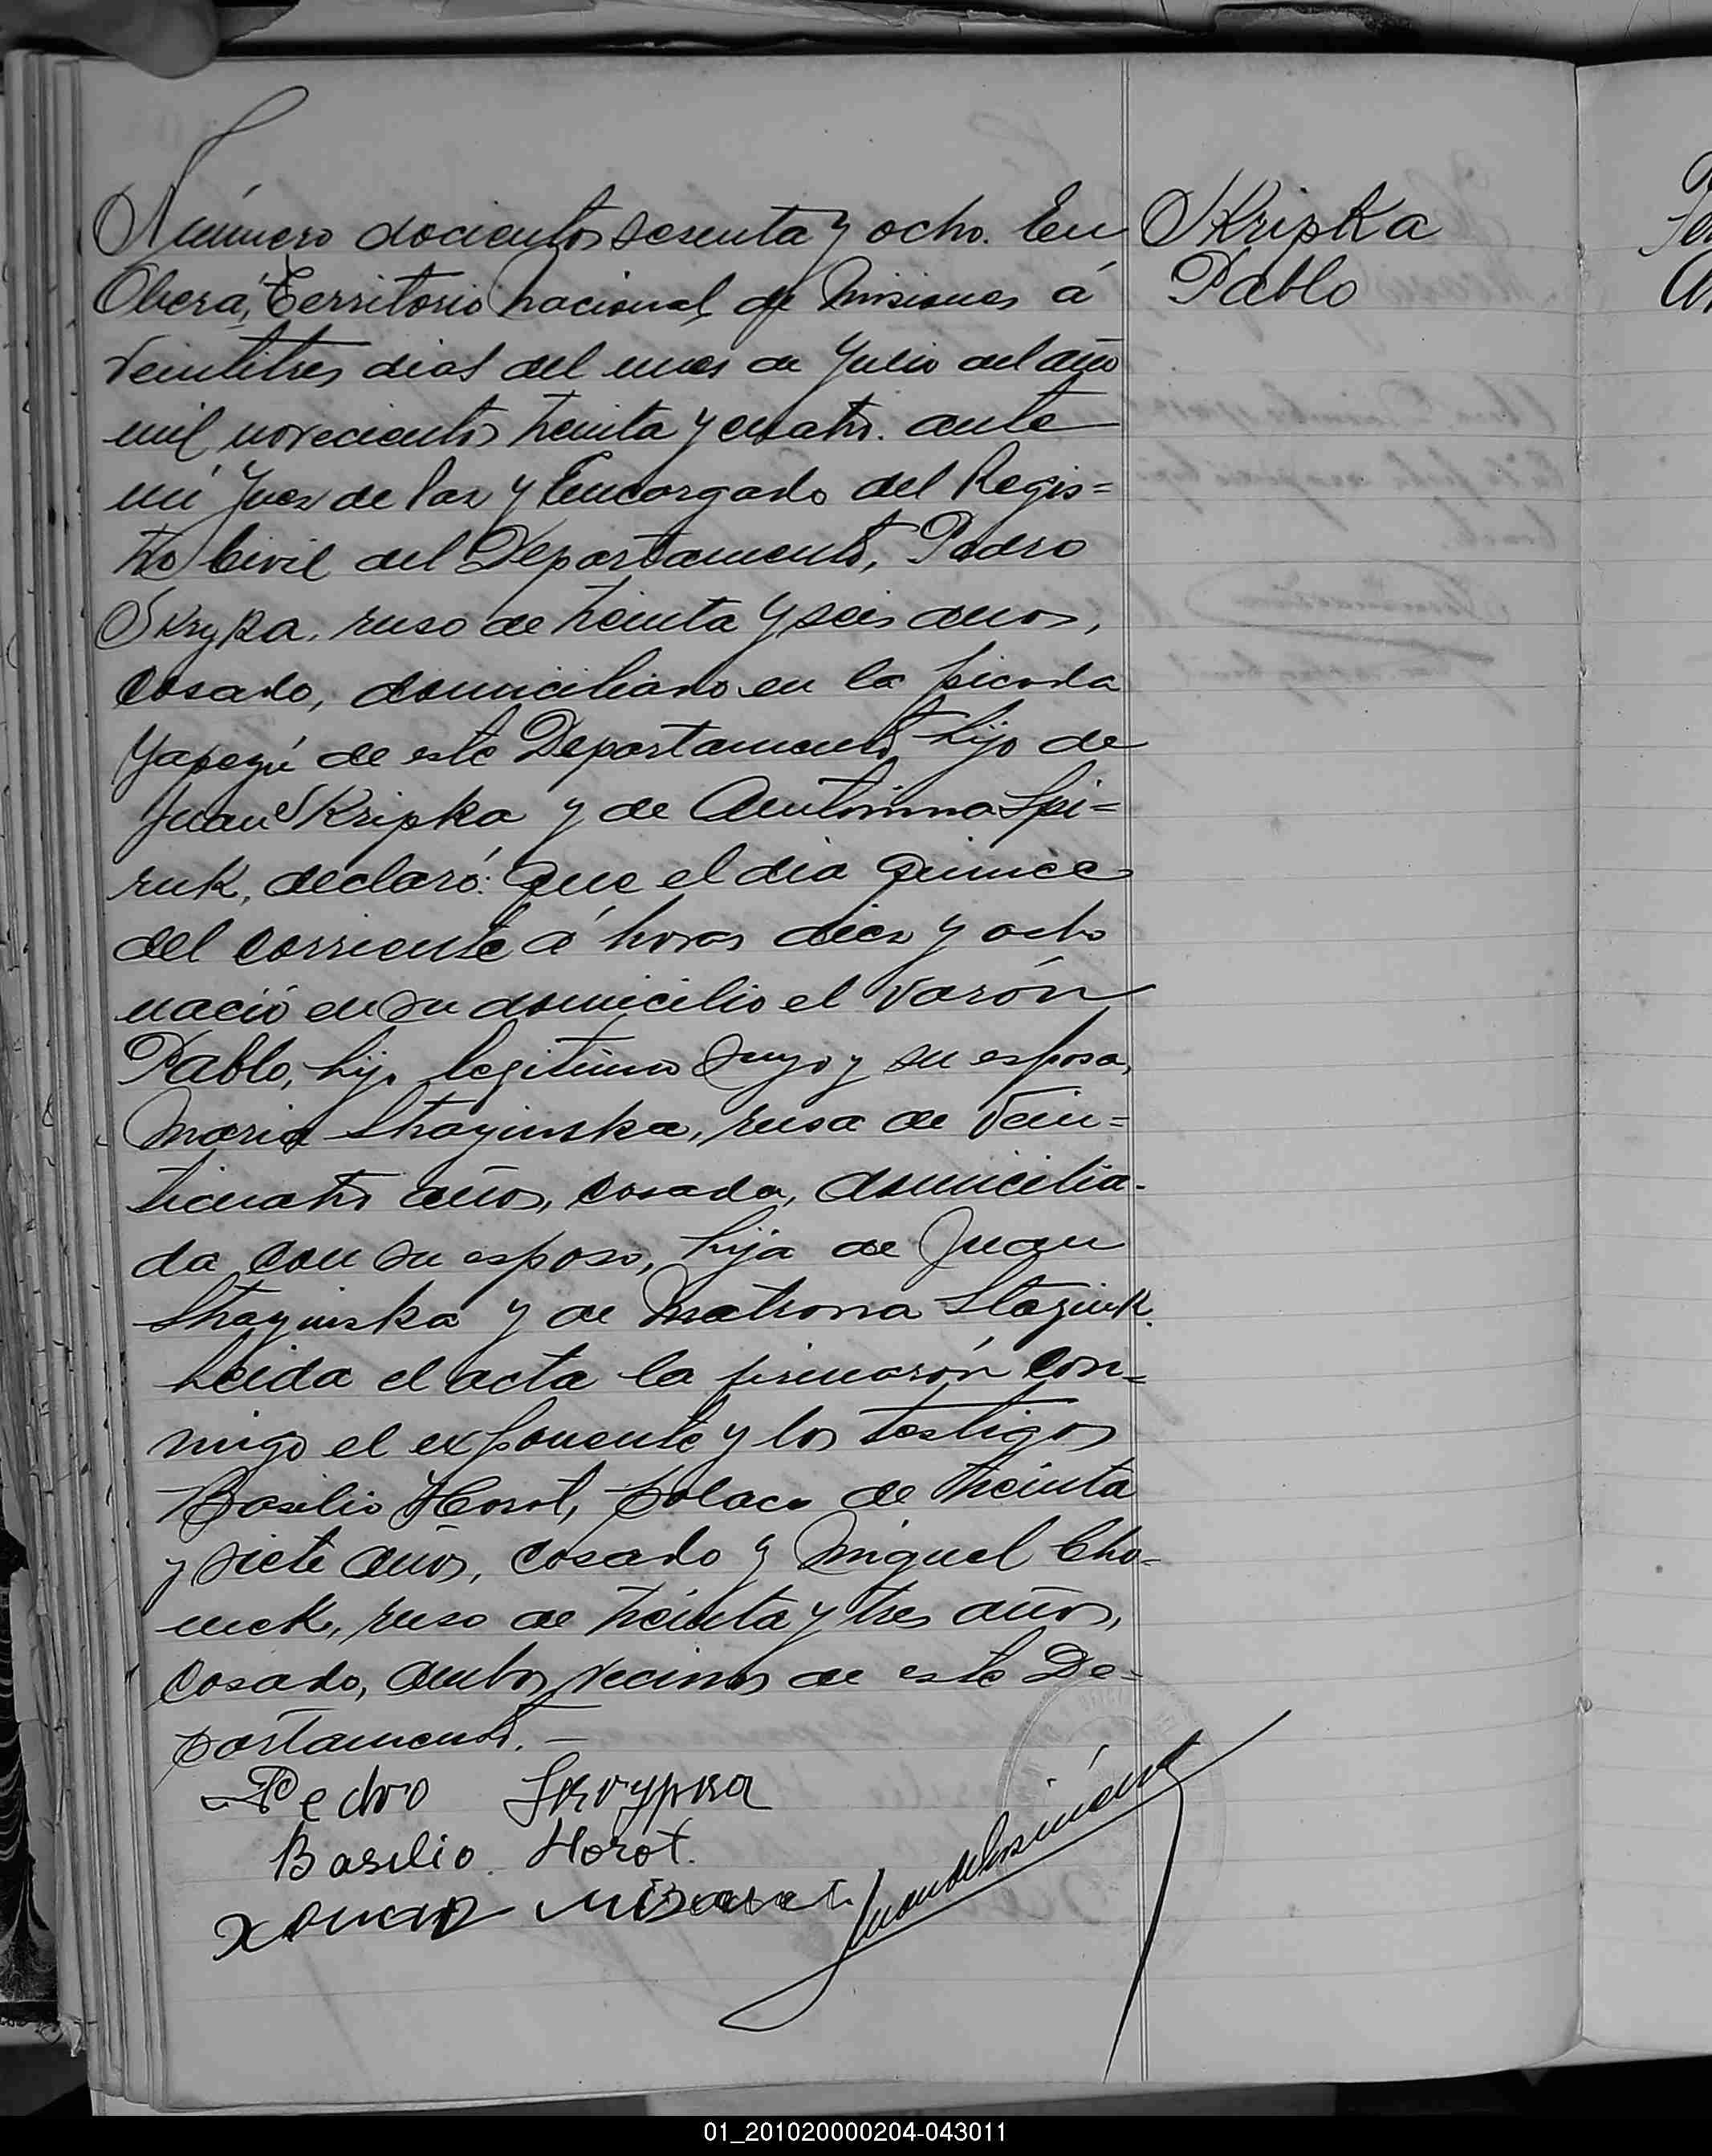 Número docientos sesenta y ocho. En
Oberá, Territorio nacional de Misiones á
veintitres dias del mes de Julio del año
mil novecientos treinta y cuatro. ante
mi Juez de Paz y Encargado del Regis=
tro Civil del Departamento, Pedro
Skrypka, ruso de treinta y seis años,
casado, domiciliado en la picada
Yapeyú de este Departamento hijo de
Juan Skripka y de Antonina Spi=
ruk, declaró: Que el dia quince
del corriente á horas diez y ocho
nació en su domicilio el varón
Pablo, hijo legitimo suyo y su esposa,
Maria Strayinska, rusa de vein=
ticuatro años, casada, domicilia-
da con su esposo, hija de Juan
Strayinska y de Matrona
Leida el acta la firmarón con=
migo el exponente y los testigos
Basilio Horot, polaco de treinta
y siete años, casado y Miguel Cho-
mek, ruso de treinta y tres años,
casado, ambos vecinos de este De-
partamento. —
Pedro Skrypka
Basilio. Horot.
Skripka
Pablo
01_201020000204-043011